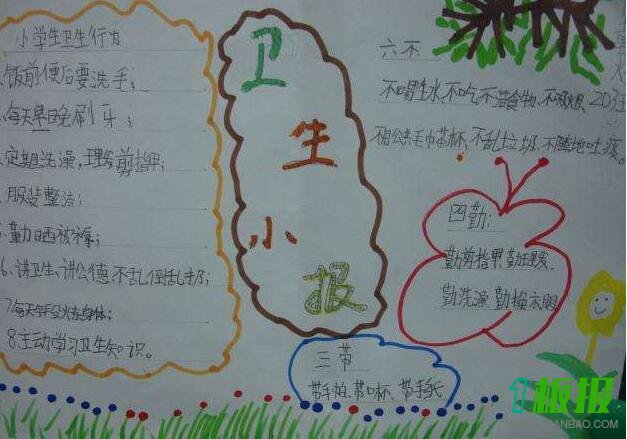 小学生卫生行为
饭前便后要洗手；
每天早晚刷牙；
定期洗澡，理发剪指甲；
服装整洁；
勤晒被褥；
6、讲卫生、讲公德、不乱倒乱扔；
7每天锻炼身体；
8.主动学习卫生知识。
卫
生
小
报
六不
不喝生水、不吃不洁食物、不吸烟、不
不用公共毛巾茶杯、不乱扔垃圾、不随地吐痰。
四勤：
勤剪指甲勤理发
勤洗澡 勤换衣服
三带
带手帕、带口杯、带手纸
1板报